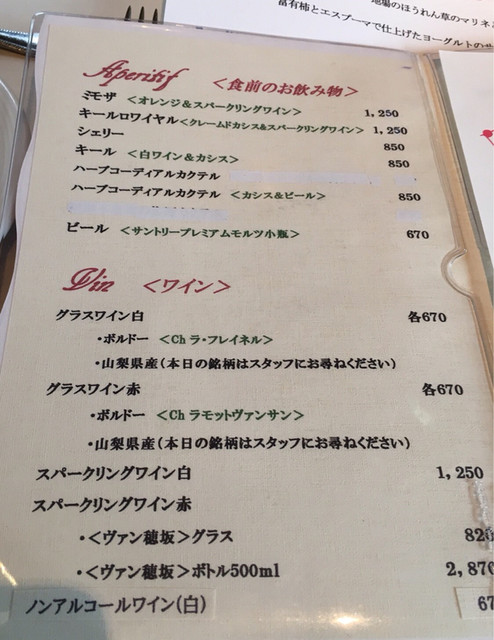 地場のほうれん草のマリネ
富有柿とエスプーマで仕上げたヨーグルトの
Aperitif <食前のお飲み物>
ミモザ <オレンジ&スパークリングワイン> 1,250
キールロワイヤル <クレームドカシス&スパークリングワイン> 1,250
シェリー 850
キール <白ワイン&カシス> 850
ハーブコーディアルカクテル
ハーブコーディアルカクテル <カシス&ビール> 850
ビール <サントリープレミアムモルツ小瓶> 670
Vin <ワイン>
グラスワイン白 各670
・ボルドー <Ch ラ・フレイネル>
・山梨県産(本日の銘柄はスタッフにお尋ねください)
グラスワイン赤 各670
・ボルドー <Ch ラモットヴァンサン>
・山梨県産(本日の銘柄はスタッフにお尋ねください)
スパークリングワイン白 1,250
スパークリングワイン赤
・<ヴァン穂坂>グラス 820
・<ヴァン穂坂>ボトル500ml 2,870
ノンアルコールワイン(白) 67